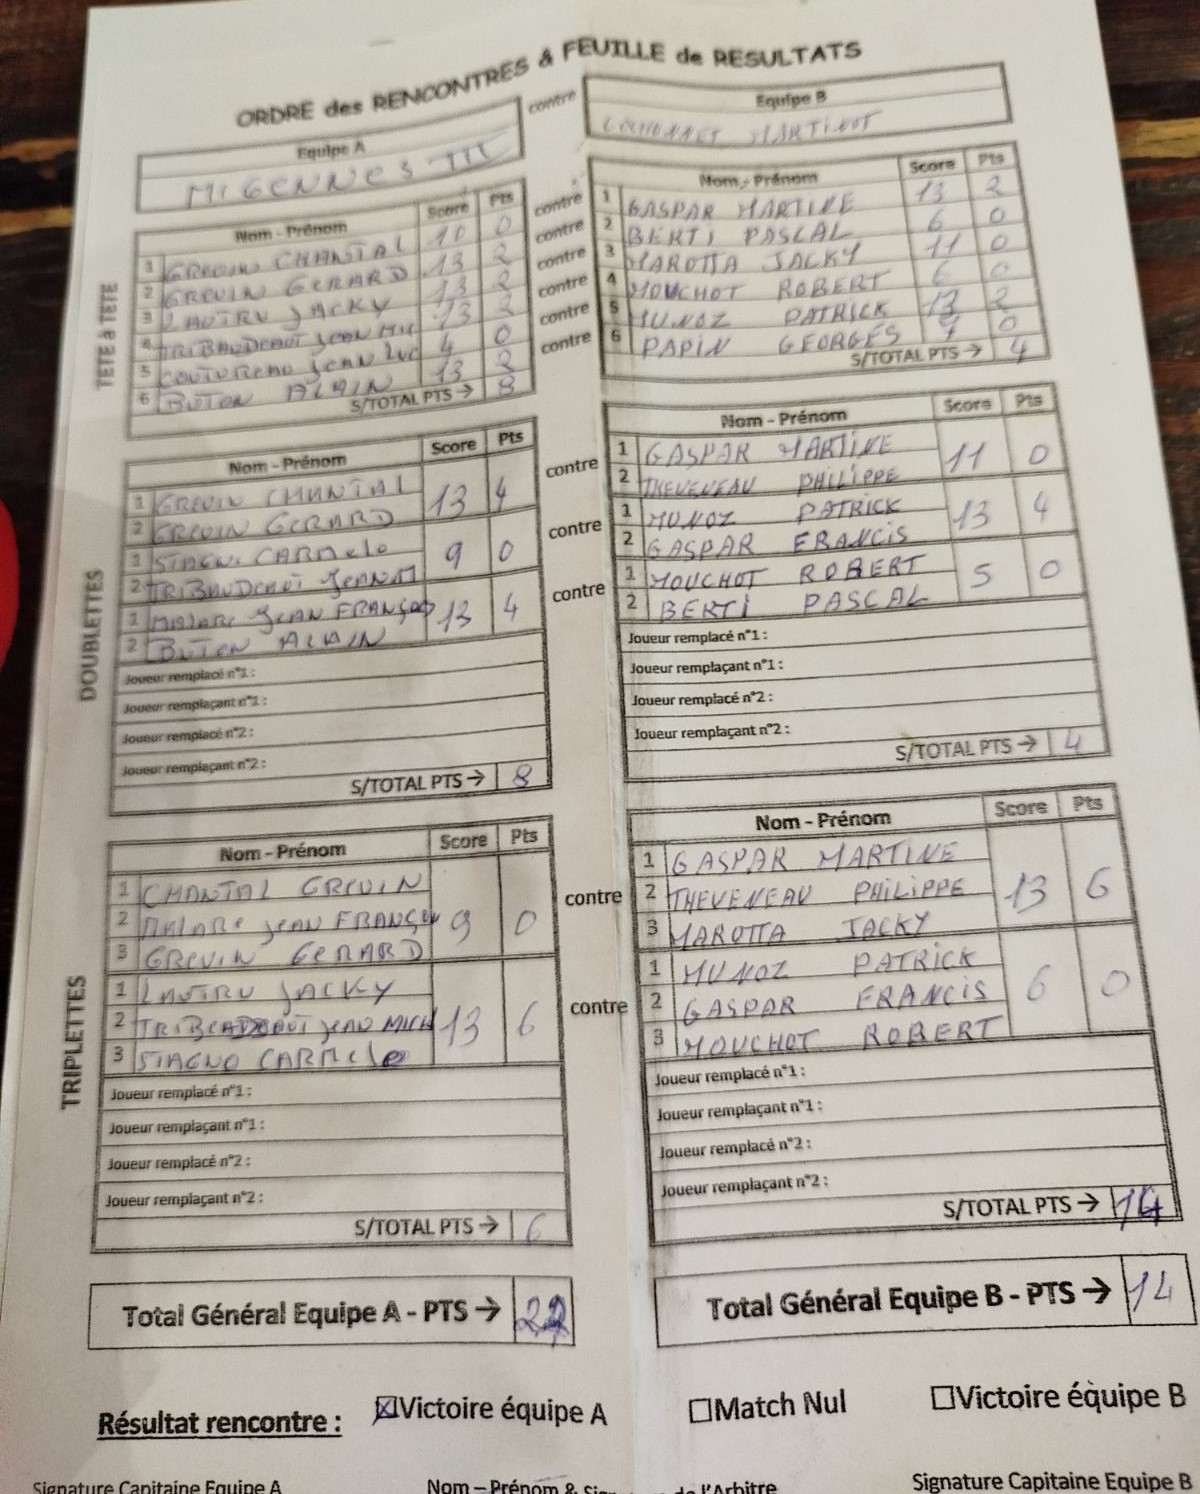 ORDRE des RENCONTRES & FEUILLE de RESULTATS
Equipe A contre Equipe B
MIGENNES III MARTINOT
TETE à TETE
Nom - Prénom Score Pts Nom - Prénom Score Pts
1 GREVIN CHANTAL 10 0 contre 1 GASPAR MARTINE 13 2
2 GREVIN GERARD 13 2 contre 2 BERTI PASCAL 6 0
3 LAUTRU JACKY 13 2 contre 3 MAROTTA JACKY 11 0
4 TRIBAUDEAUT JEAN MIC 13 2 contre 4 MOUCHOT ROBERT 6 0
5 COUTUREAU JEAN LUC 4 0 contre 5 MUNOZ PATRICK 13 2
6 BUTON ALAIN 13 2 contre 6 PAPIN GEORGES 0
S/TOTAL PTS → 8 S/TOTAL PTS → 4
DOUBLETTES
Nom - Prénom Score Pts Nom - Prénom Score Pts
1 GREVIN CHANTAL 13 4 contre 1 GASPAR MARTINE 11 0
2 GREVIN GERARD 2 THEVENEAU PHILIPPE
1 STAGNO CARMELO 9 0 contre 1 MUNOZ PATRICK 13 4
2 JEAN M 2 GASPAR FRANCIS
1 MALARE JEAN FRANÇOIS 13 4 contre 1 MOUCHOT ROBERT 5 0
2 BUTON ALAIN 2 BERTI PASCAL
Joueur remplacé n°1 : Joueur remplacé n°1 :
Joueur remplaçant n°1 : Joueur remplaçant n°1 :
Joueur remplacé n°2 : Joueur remplacé n°2 :
Joueur remplaçant n°2 : Joueur remplaçant n°2 :
S/TOTAL PTS → 8 S/TOTAL PTS → 4
TRIPLETTES
Nom - Prénom Score Pts Nom - Prénom Score Pts
1 CHANTAL GREVIN 9 0 contre 1 GASPAR MARTINE 13 6
2 MALARE JEAN FRANÇOIS 2 THEVENEAU PHILIPPE
3 GREVIN GERARD 3 MAROTTA JACKY
1 LAUTRU JACKY 13 6 contre 1 MUNOZ PATRICK 6 0
2 JEAN MICH 2 GASPAR FRANCIS
3 STAGNO CARMELO 3 MOUCHOT ROBERT
Joueur remplacé n°1 : Joueur remplacé n°1 :
Joueur remplaçant n°1 : Joueur remplaçant n°1 :
Joueur remplacé n°2 : Joueur remplacé n°2 :
Joueur remplaçant n°2 : Joueur remplaçant n°2 :
S/TOTAL PTS → 6 S/TOTAL PTS →
Total Général Equipe A - PTS → 22 Total Général Equipe B - PTS → 14
Résultat rencontre : ☒Victoire équipe A ☐Match Nul ☐Victoire équipe B
Signature Capitaine Equipe A Nom – Prénom & l'Arbitre Signature Capitaine Equipe B